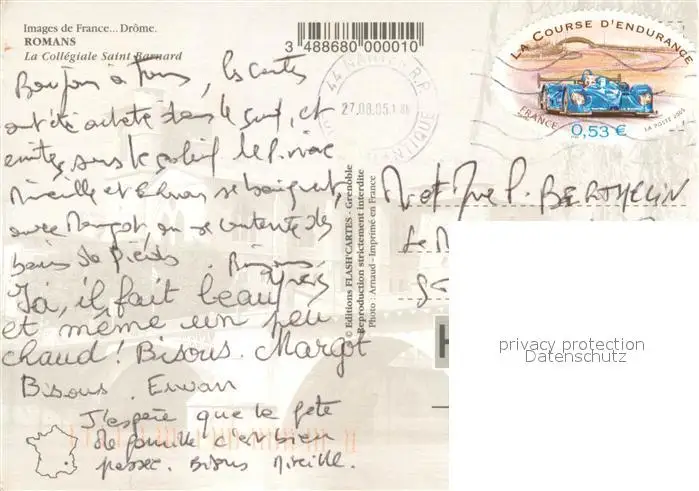 Images de France... Drôme.
ROMANS
La Collégiale Saint Barnard
3 488680 000010
Bonjour à tous, les cartes
ont été acheté dans le sud, et
sous le soleil
Mireille et Erwan se baignent,
avec Margot, on se contente de
bains de pieds. Bisous.
Yves
Ici, il fait beau
et même un peu
chaud! Bisous. Margot
Bisous. Erwan
J'espère que la fête
de famille c'est bien
passée. Bisous Mireille.
© Editions FLASH'CARTES - Grenoble
Reproduction strictement interdite
Photo : Arnaud - Imprimé en France
44 NANTES R.P.
27.08.05
LOIRE ATLANTIQUE
LA COURSE D'ENDURANCE
FRANCE 0,53 €
LA POSTE 2005
M et Me P. BERTHELIN
Le
H
privacy protection
Datenschutz